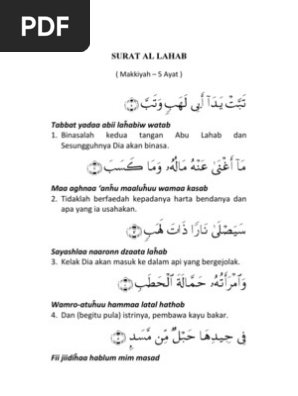 PDF
SURAT AL LAHAB
( Makkiyah – 5 Ayat )
تَبَّتْ يَدَآ أَبِى لَهَبٍ وَتَبَّ ﴿١﴾
Tabbat yadaa abii laĥabiw watab
1. Binasalah kedua tangan Abu Lahab dan
Sesungguhnya Dia akan binasa.
مَآ أَغْنَىٰ عَنْهُ مَالُهُۥ وَمَا كَسَبَ ﴿٢﴾
Maa aghnaa ‘anĥu maaluĥuu wamaa kasab
2. Tidaklah berfaedah kepadanya harta bendanya dan
apa yang ia usahakan.
سَيَصْلَىٰ نَارًا ذَاتَ لَهَبٍ ﴿٣﴾
Sayashlaa naaronn dzaata laĥab
3. Kelak Dia akan masuk ke dalam api yang bergejolak.
وَٱمْرَأَتُهُۥ حَمَّالَةَ ٱلْحَطَبِ ﴿٤﴾
Wamro-atuĥuu hammaa latal hathob
4. Dan (begitu pula) istrinya, pembawa kayu bakar.
فِى جِيدِهَا حَبْلٌ مِّن مَّسَدٍۭ ﴿٥﴾
Fii jiidiĥaa hablum mim masad